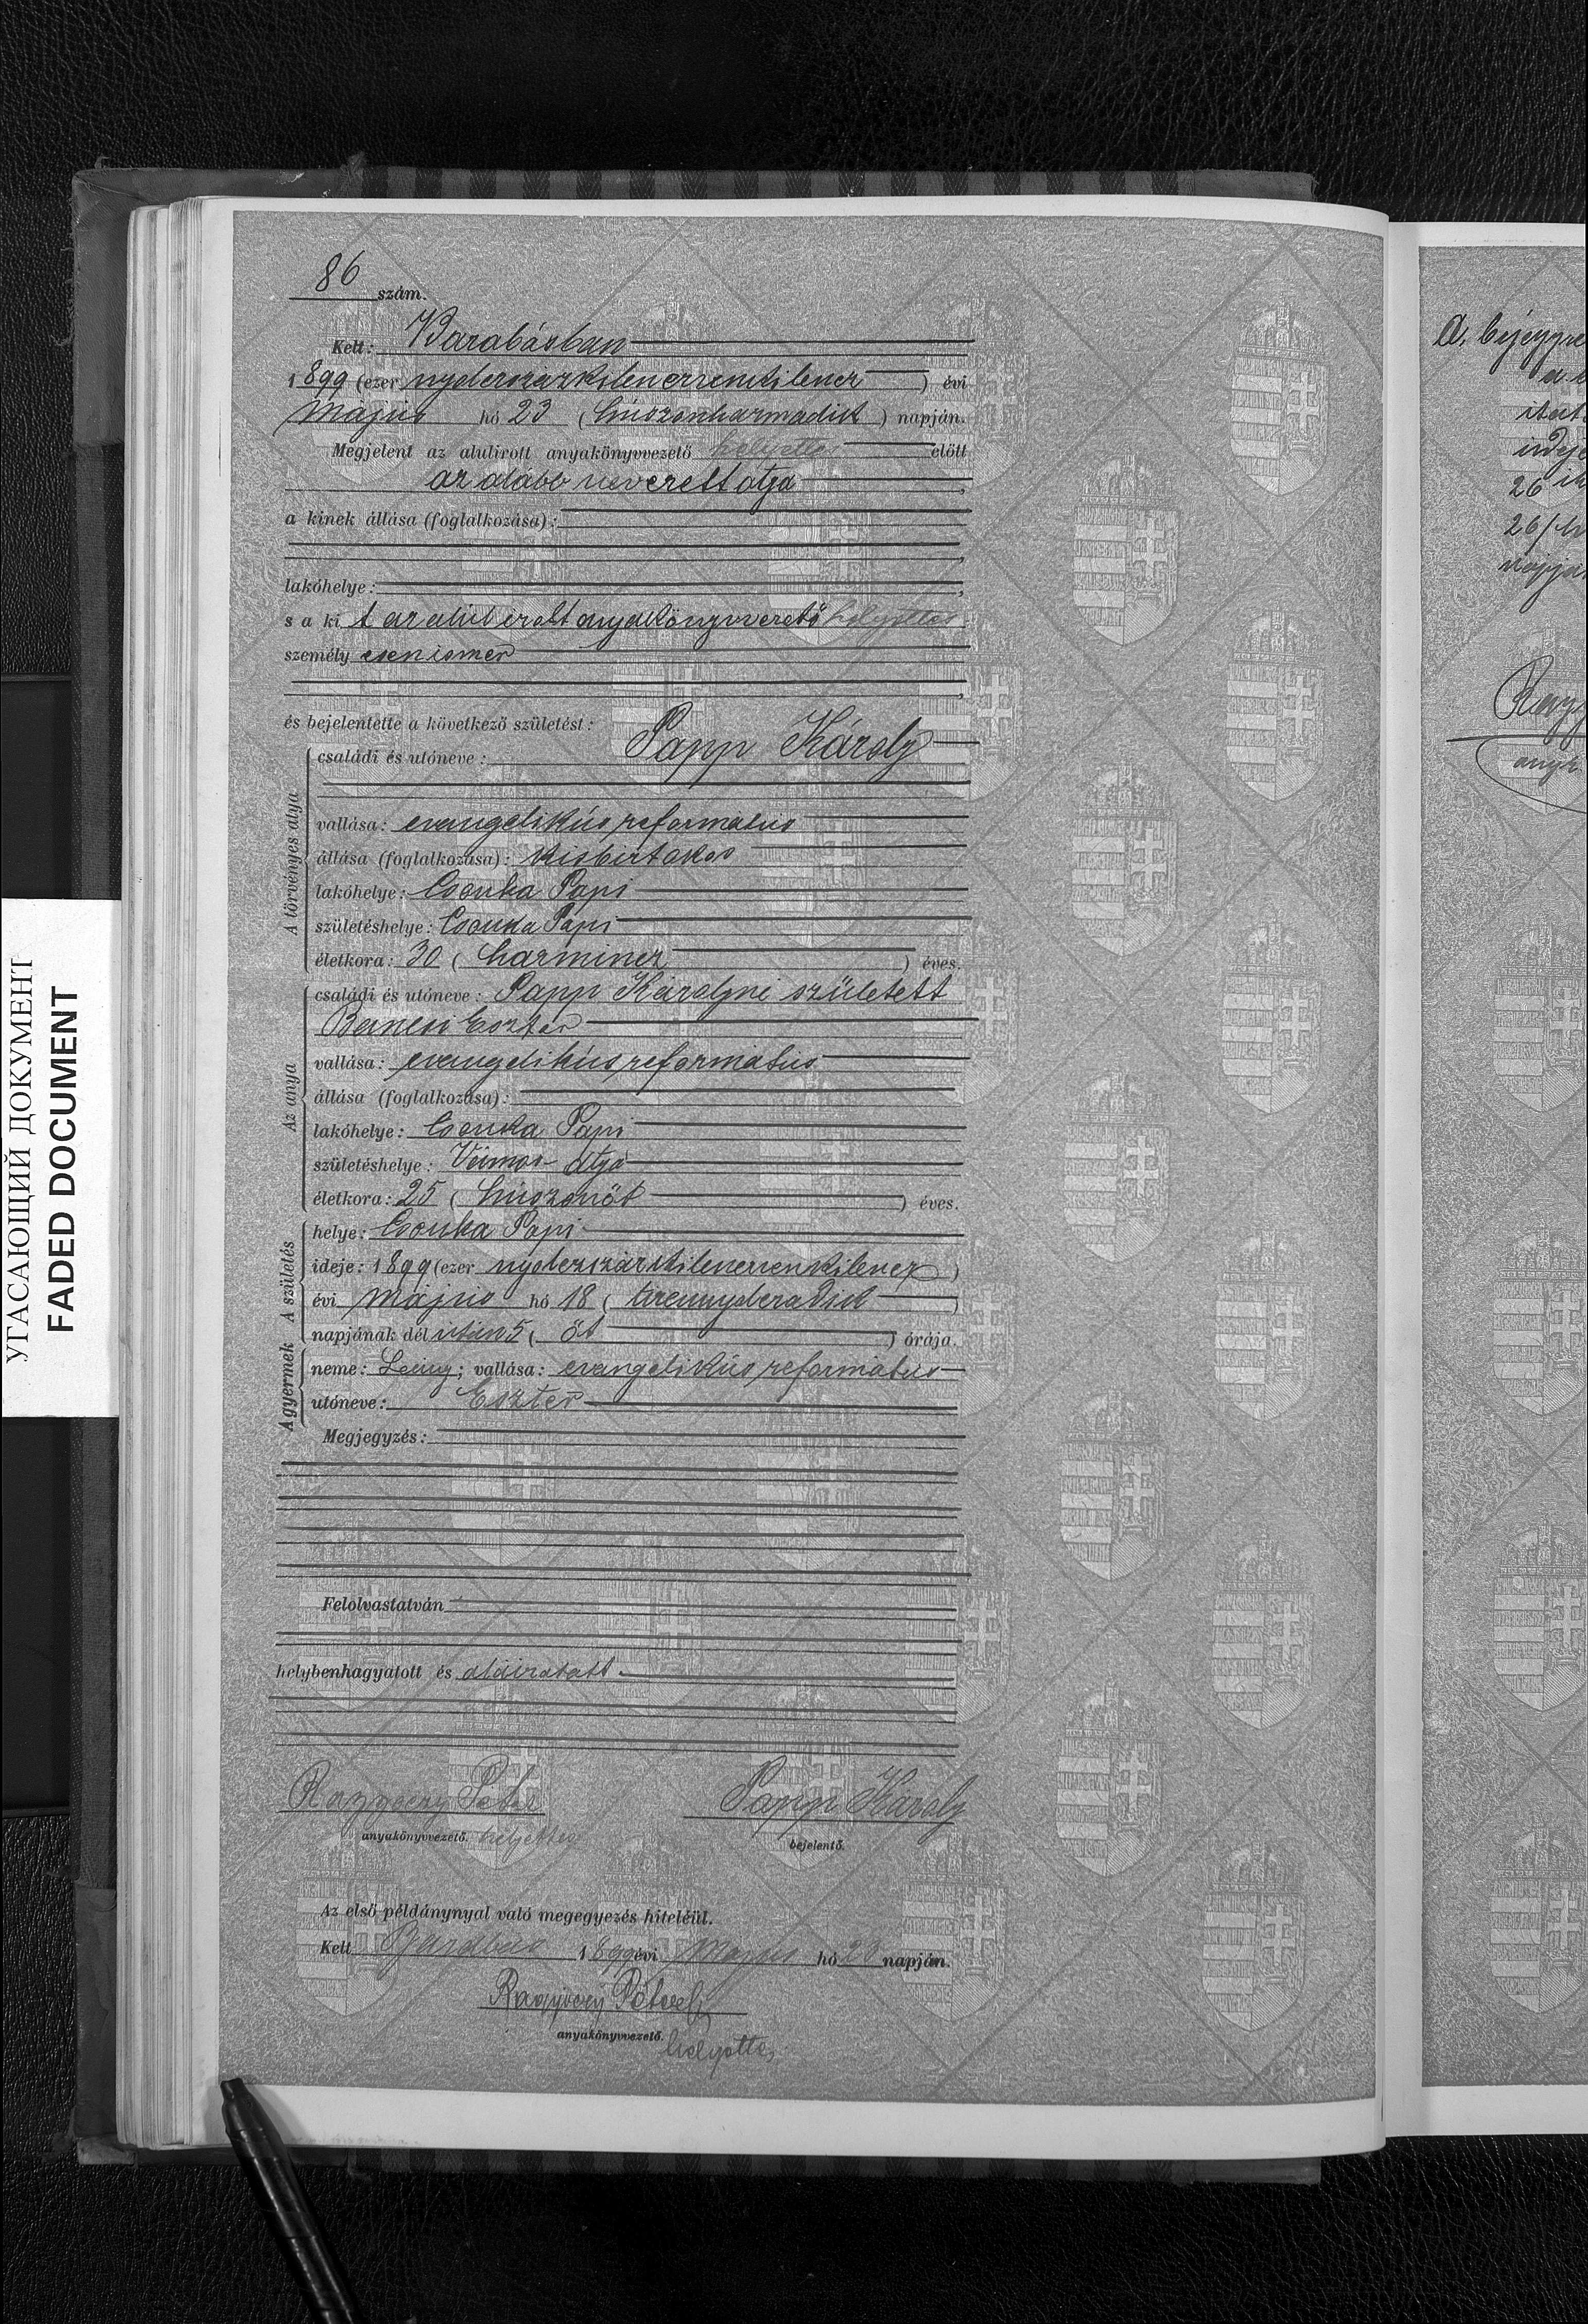 86 szám.
Kelt: Barabásban
1899 (ezer nyolczszázkilenczvenkilencz) évi
május hó 23 (huszonharmadik) napján.
Megjelent az alulirott anyakönyvvezető helyettes előtt
az alább nevezett atya,
a kinek állása (foglalkozása):
lakóhelye:
s a kit az alulirott anyakönyvvezető helyettes
személyesen ismer
és bejelentette a következő születést:
A törvényes atya
családi és utóneve: Papp Károly
vallása: evangelikús református
állása (foglalkozása): kisbirtokos
lakóhelye: Csonka Papi
születéshelye: Csonka Papi
életkora: 30 (harmincz) éves.
Az anya
családi és utóneve: Papp Károlyné született
Eszter
vallása: evangelikús református
állása (foglalkozása):
lakóhelye: Csonka Papi
születéshelye: Vámos-Atya
életkora: 25 (huszonöt) éves.
A születés
helye: Csonka Papi
ideje: 1899 (ezer nyolczszázkilenczvenkilencz)
évi május hó 18 (tizennyolczadik)
napjának dél után 5 (öt) órája.
A gyermek
neme: Leány; vallása: evangelikús református
utóneve: Eszter
Megjegyzés:
Felolvastatván
helybenhagyatott és aláiratott.
Papp Károly
anyakönyvvezető. helyettes
bejelentő.
Az első példánynyal való megegyezés hiteléül.
Kelt Barabás 1899 évi május hó 23 napján.
anyakönyvvezető. helyettes
A bejegyzé
26
26/
УГАСАЮЩИЙ ДОКУМЕНТ
FADED DOCUMENT